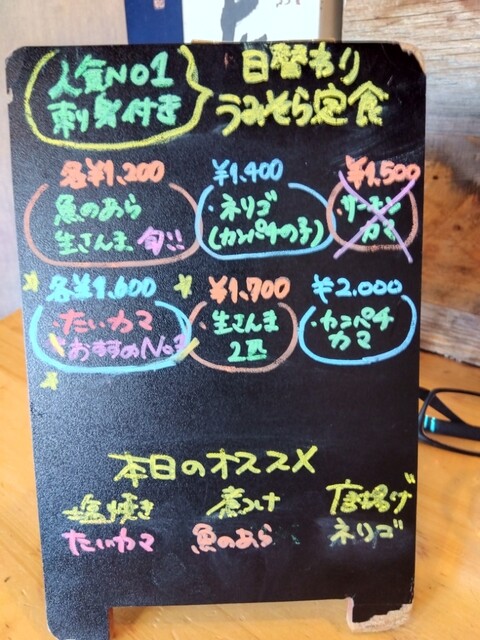 人気NO1
刺身付き
日替わり
うみそら定食
各¥1,200
魚のあら
生さんま 旬!!
¥1,400
・ネリゴ
(カンパチの子)
¥1,500
・サーモン
カマ
各¥1,600
・たいカマ
おすすめNo1
¥1,700
・生さんま
2匹
¥2,000
・カンパチ
カマ
本日のオススメ
塩焼き
たいカマ
煮つけ
魚のあら
唐揚げ
ネリゴ